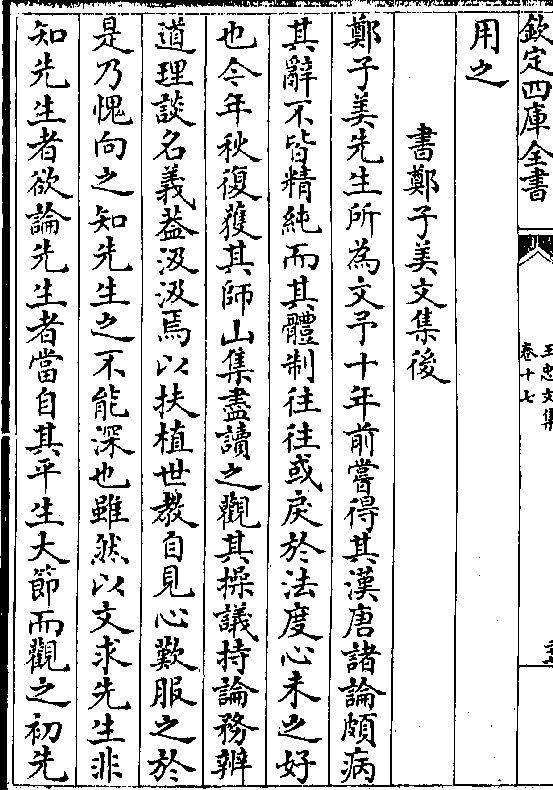 欽定四庫全書
王忠文集
卷十七
用之
書鄭子美文集後
鄭子美先生所為文予十年前嘗得其漢唐諸論頗病
其辭不皆精純而其體制往往或戾於法度心未之好
也今年秋復獲其師山集盡讀之觀其操議持論務辨
道理談名義益汲汲焉以扶植世教自見心歎服之於
是乃愧向之知先生之不能深也雖然以文求先生非
知先生者欲論先生者當自其平生大節而觀之初先